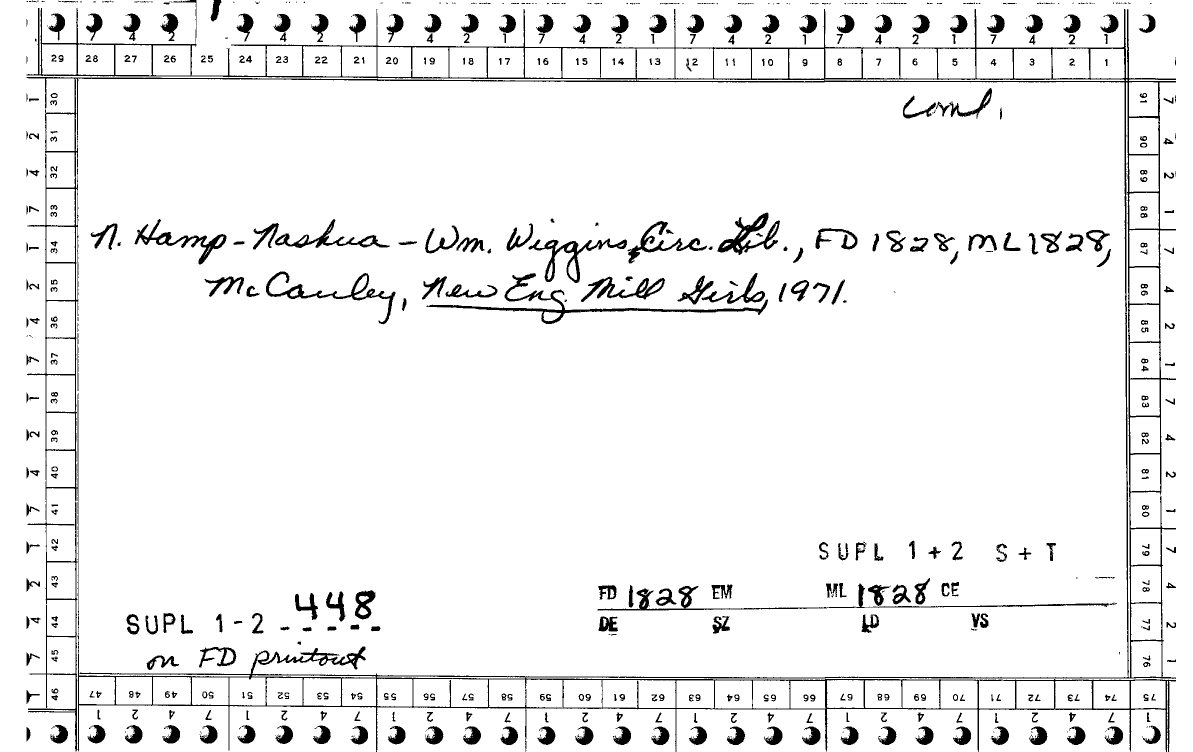 7 4 2 1 7 4 2 1 7 4 2 1 7 4 2 1 7 4 2 1 7 4 2 1 7 4 2 1
29 28 27 26 25 24 23 22 21 20 19 18 17 16 15 14 13 12 11 10 9 8 7 6 5 4 3 2 1
coml.
N. Hamp - Nashua - Wm. Wiggins, Circ. Lib., FD 1828, ML 1828,
McCauley, New Eng. Mill Girls, 1971.
SUPL 1+2 S+T
FD 1828 EM ML 1828 CE
DE SZ LD VS
SUPL 1-2 448
on FD printout
30 31 32 33 34 35 36 37 38 39 40 41 42 43 44 45 46
91 90 89 88 87 86 85 84 83 82 81 80 79 78 77 76 75
47 48 49 50 51 52 53 54 55 56 57 58 59 60 61 62 63 64 65 66 67 68 69 70 71 72 73 74 75
1 2 4 7 1 2 4 7 1 2 4 7 1 2 4 7 1 2 4 7 1 2 4 7 1 2 4 7 1